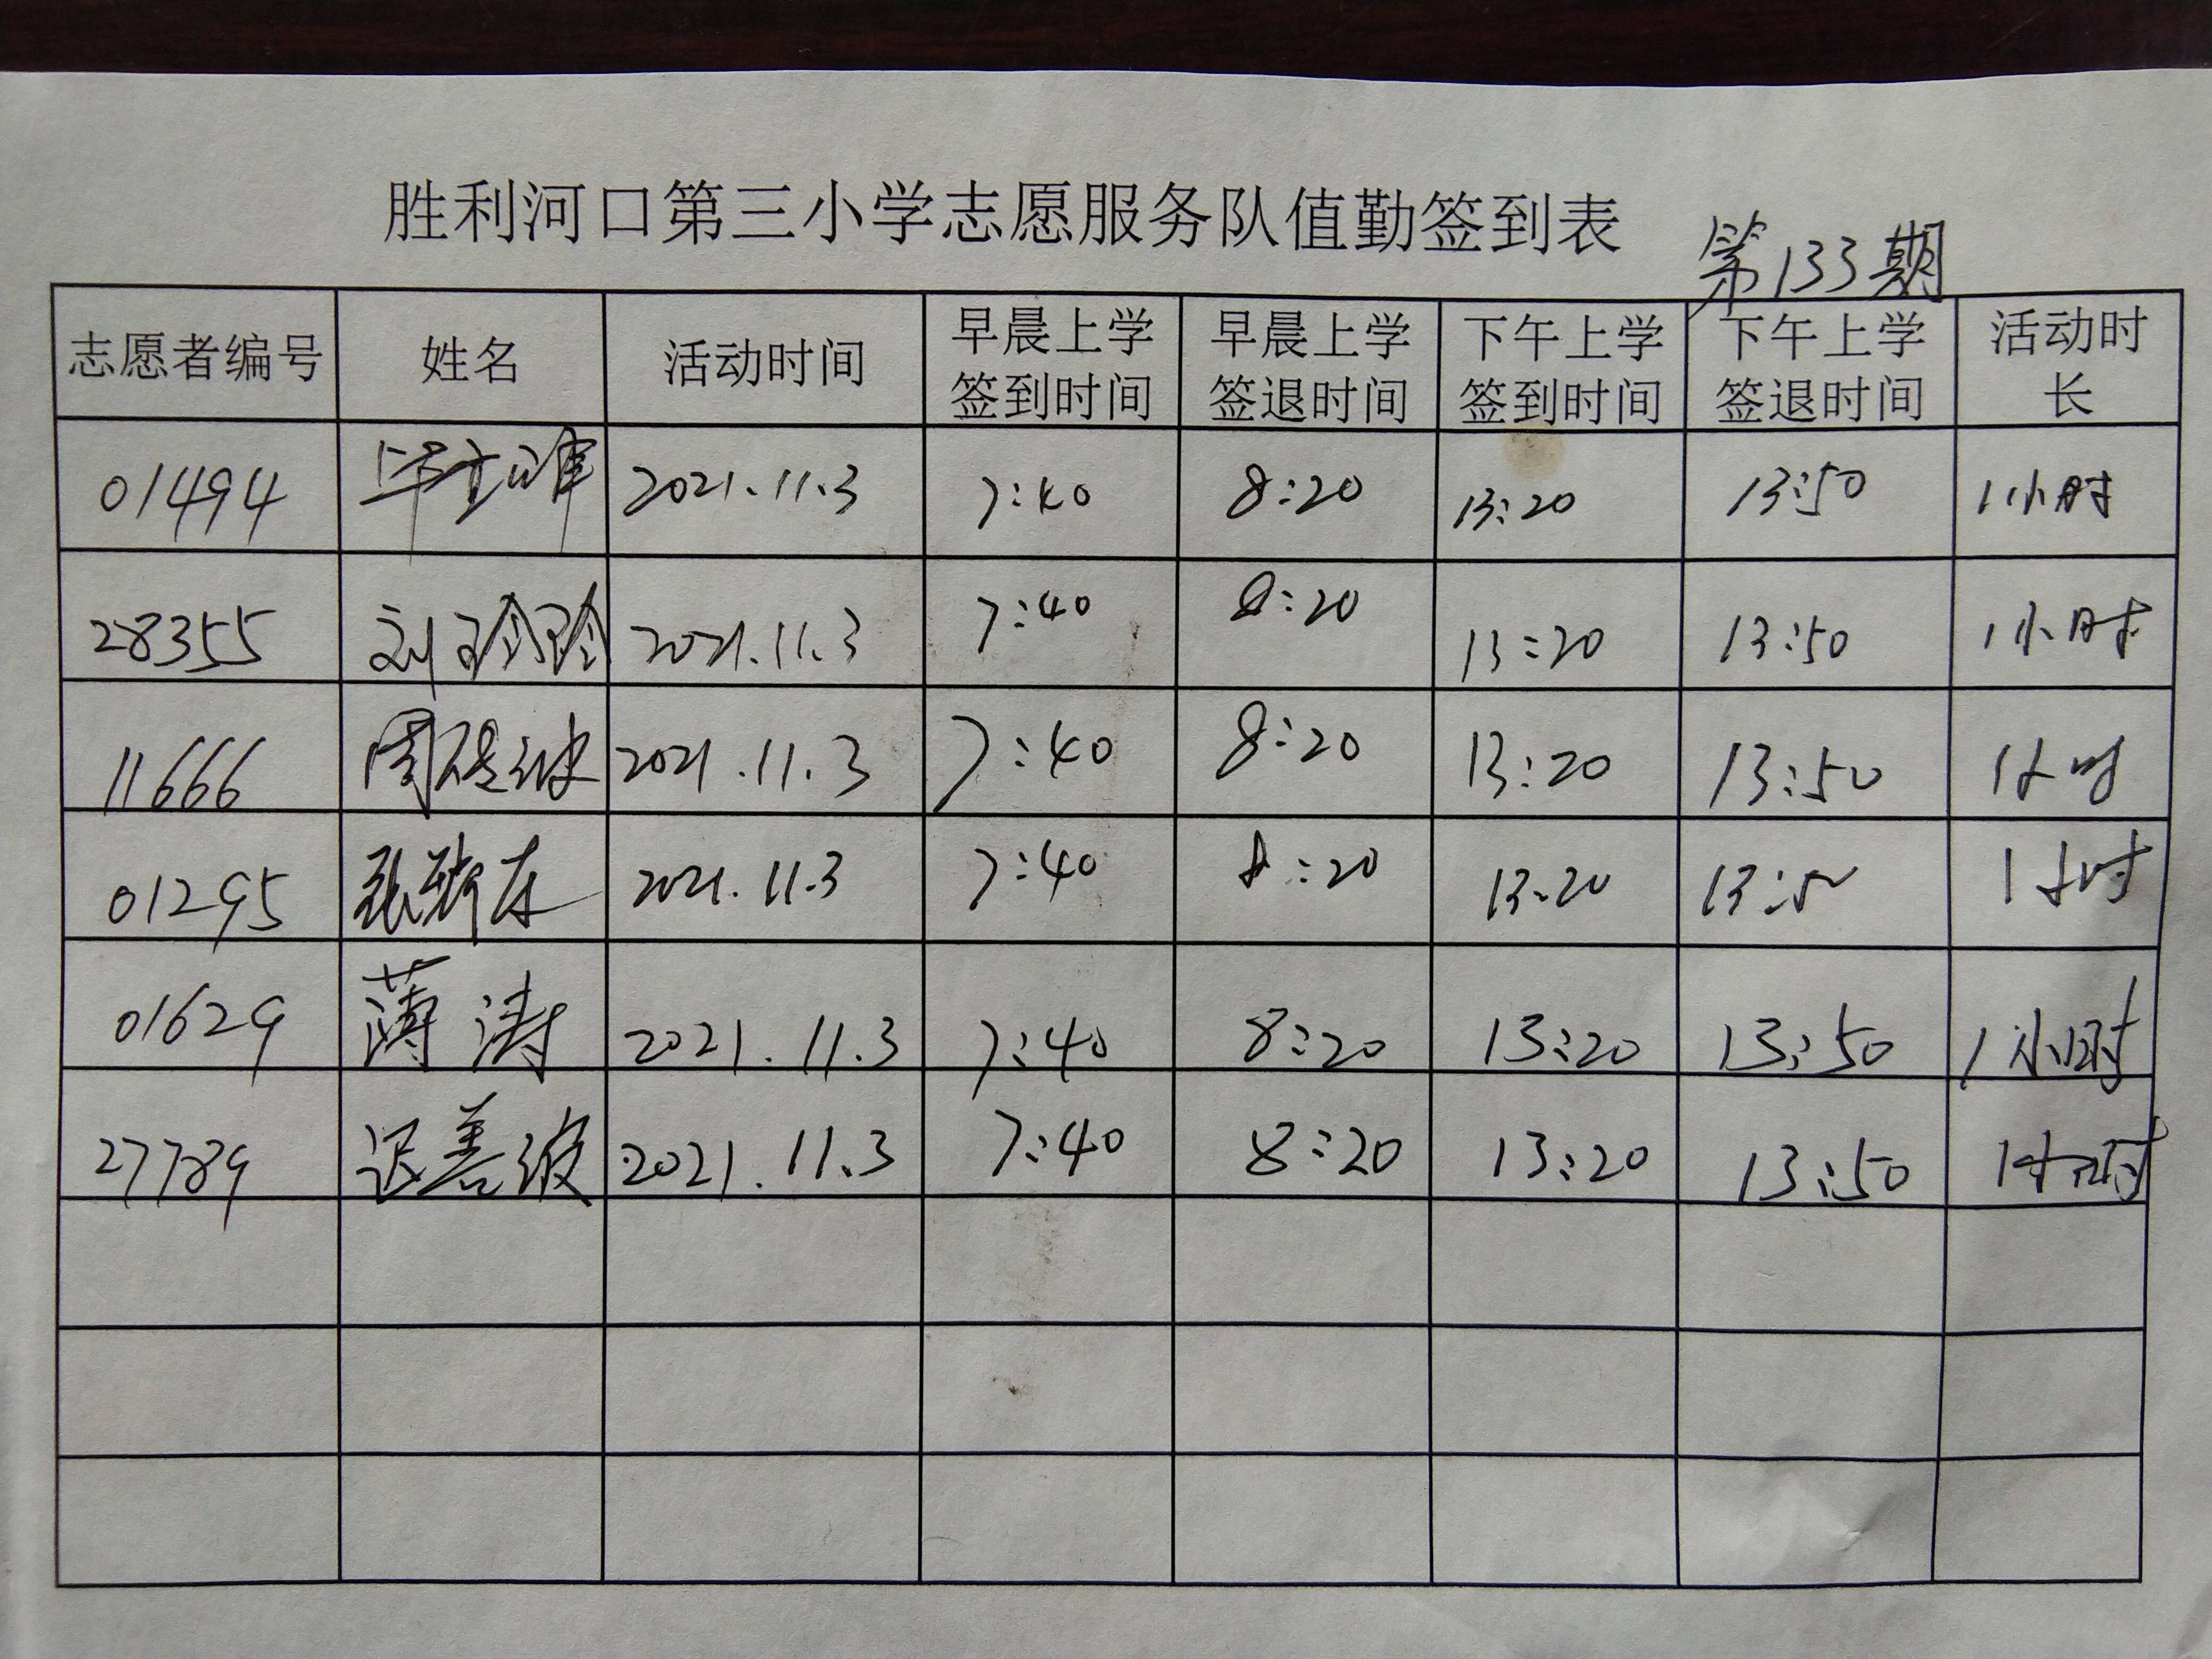 胜利河口第三小学志愿服务队值勤签到表 第133期
志愿者编号 姓名 活动时间 早晨上学签到时间 早晨上学签退时间 下午上学签到时间 下午上学签退时间 活动时长
01494 2021.11.3 7:40 8:20 13:20 13:50 1小时
28355 刘玲玲 2021.11.3 7:40 8:20 13:20 13:50 1小时
11666 2021.11.3 7:40 8:20 13:20 13:50 1小时
01295 2021.11.3 7:40 8:20 13:20 13:50 1小时
01629 薄涛 2021.11.3 7:40 8:20 13:20 13:50 1小时
27789 迟善波 2021.11.3 7:40 8:20 13:20 13:50 1小时